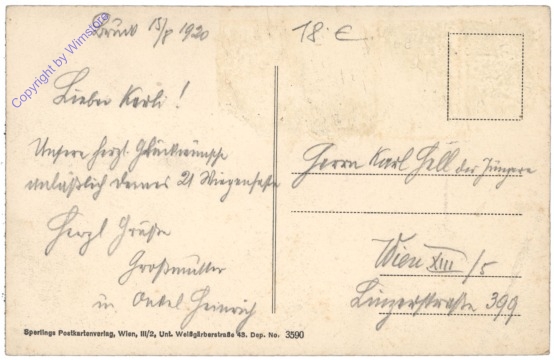 Bruck 15/8 1920
18.€
Copyright by Wimstore
Lieber Karli!
Unsere herzl. Glückwünsche
anläßlich deines 21 Wiegenfeste
Herzl Grüße
Großmutter
u Onkel Heinrich
Herrn Karl Höll der Jüngere
Wien XIII/5
Linzerstraße 399
Sperlings Postkartenverlag, Wien, III/2, Unt. Weißgärberstraße 43. Dep. No. 3590